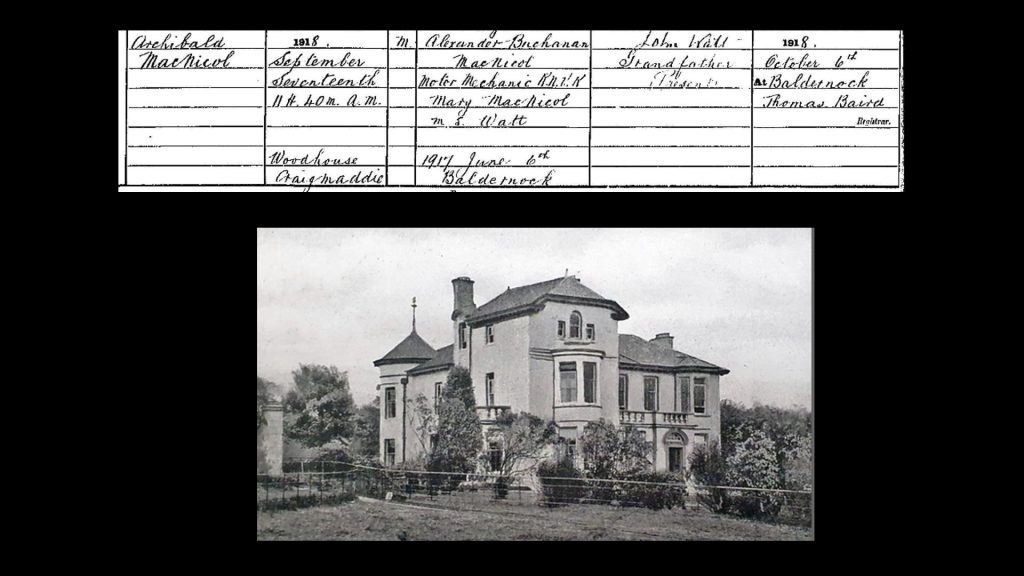 Archibald
MacNicol
1918.
September
Seventeenth
11 h. 40 m. A.M.
Woodhouse
Craigmaddie
M.
Alexander Buchanan
MacNicol
Motor Mechanic R.N.V.R
Mary MacNicol
m.s. Watt
1917 June 6th
Baldernock
John Watt
Grandfather
(Present)
1918.
October 6th
At Baldernock
Thomas Baird
Registrar.